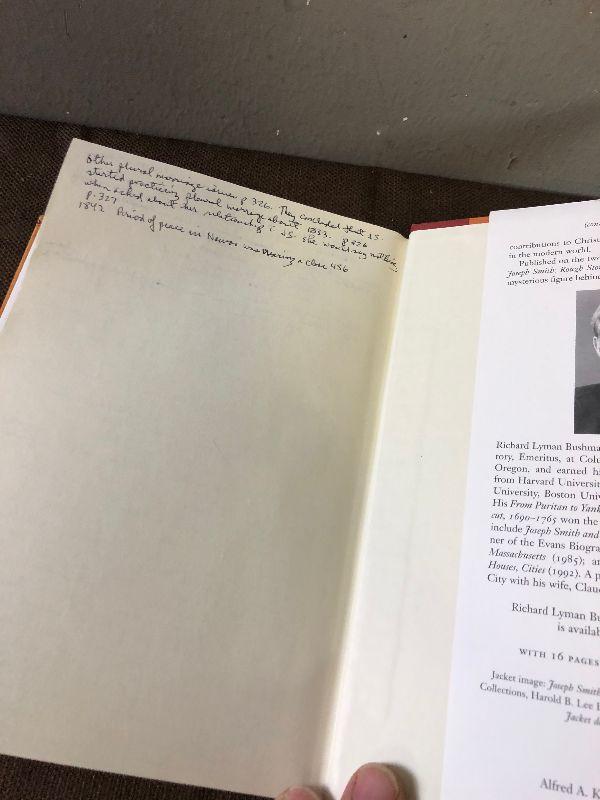 Other plural marriage issues p 326. They concluded that JS
started practicing plural marriage about 1833. p 326
when asked about her relationship c JS she would say nothing
p. 327
1842 Period of peace in Nauvoo was nearing a close 436
contributions to Christ
in the modern world.
Published on the two
Joseph Smith: Rough Ston
mysterious figure behin
Richard Lyman Bushma
tory, Emeritus, at Colu
Oregon, and earned hi
from Harvard Universit
University, Boston Univ
His From Puritan to Yank
cut, 1690–1765 won the
include Joseph Smith and
ner of the Evans Biogra
Massachusetts (1985); an
Houses, Cities (1992). A p
City with his wife, Claud
Richard Lyman Bu
is availab
WITH 16 PAGES
Jacket image: Joseph Smith
Collections, Harold B. Lee L
Jacket de
Alfred A. K